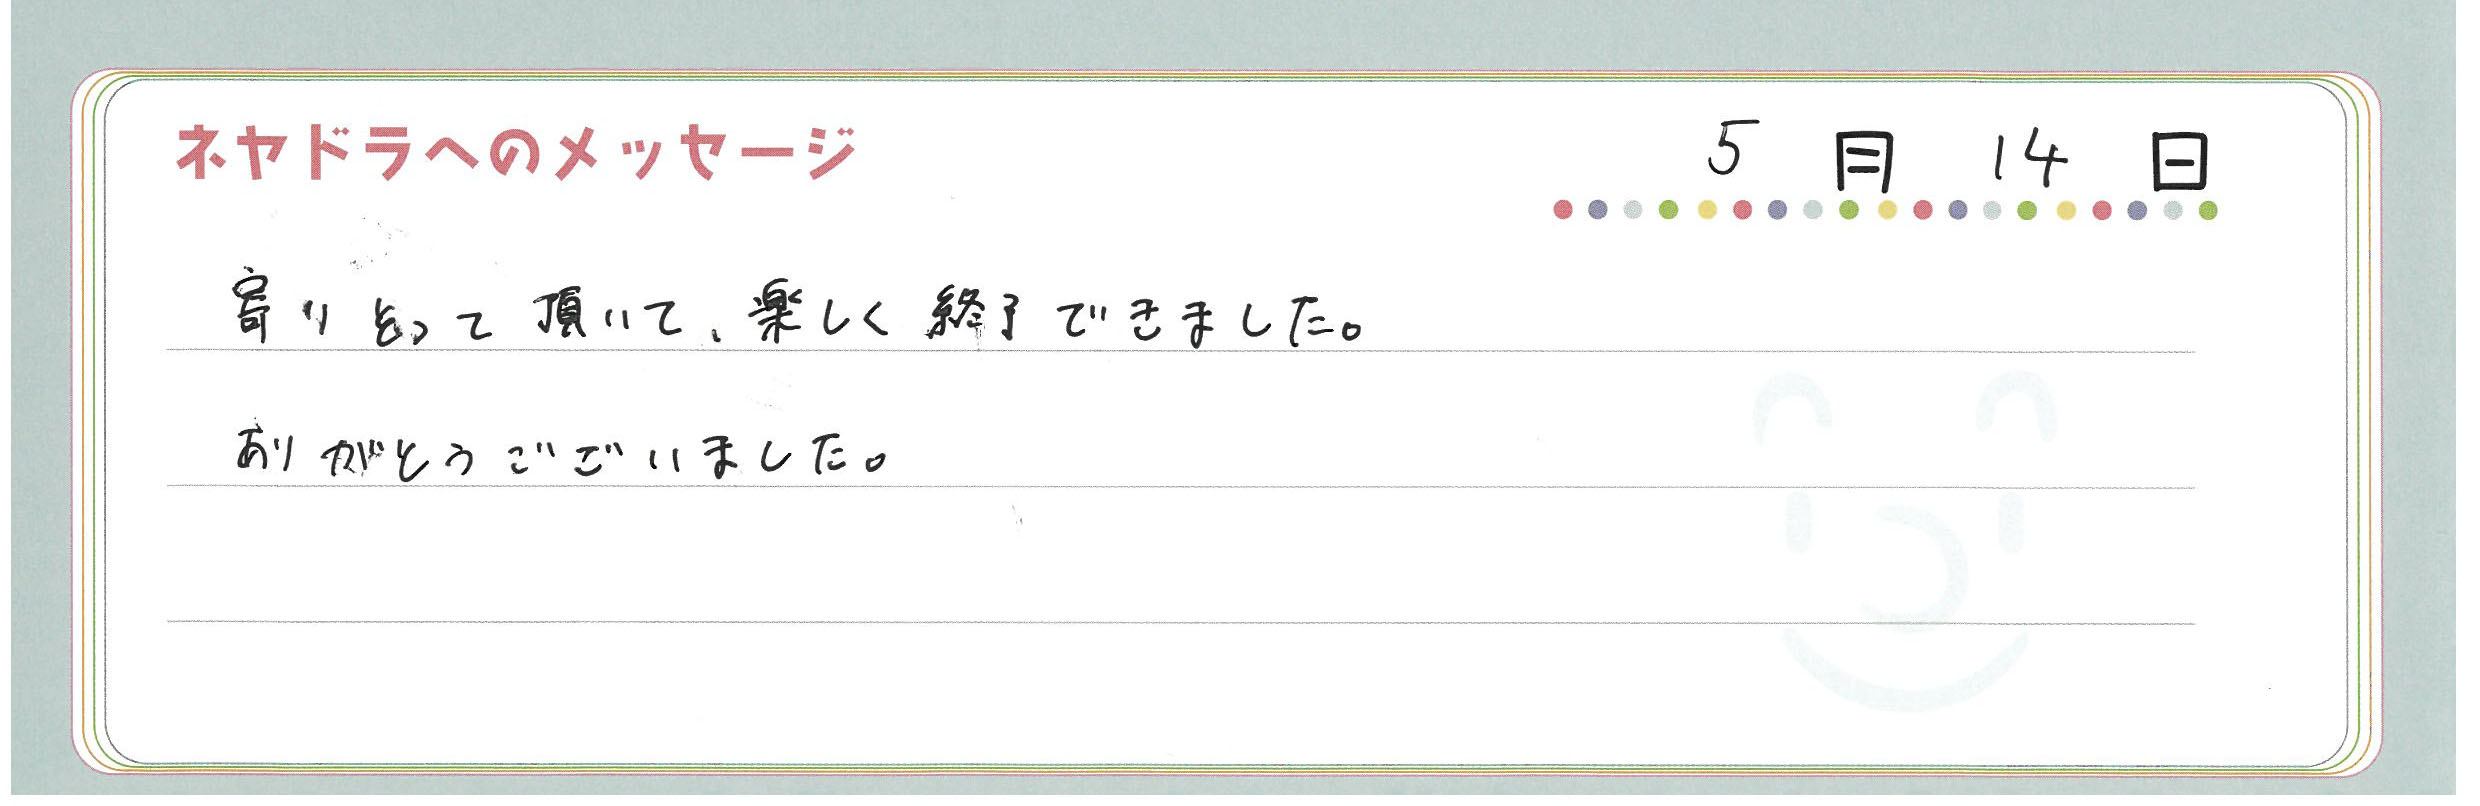 ネヤドラへのメッセージ
5月14日
寄りそって頂いて、楽しく終了できました。
ありがとうございました。